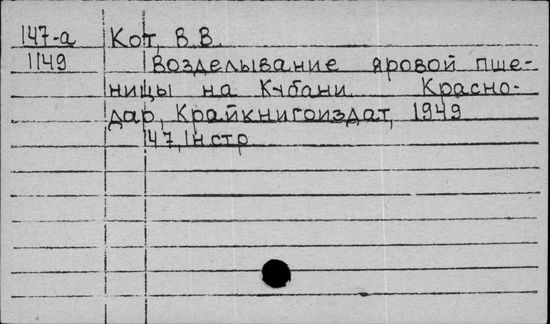 147-а Кот, В.В.
1149 Возделывание яровой пше-
ницы на Кубани. Красно-
дар, Крайкнигоиздат, 1949
47, 1н.стр.